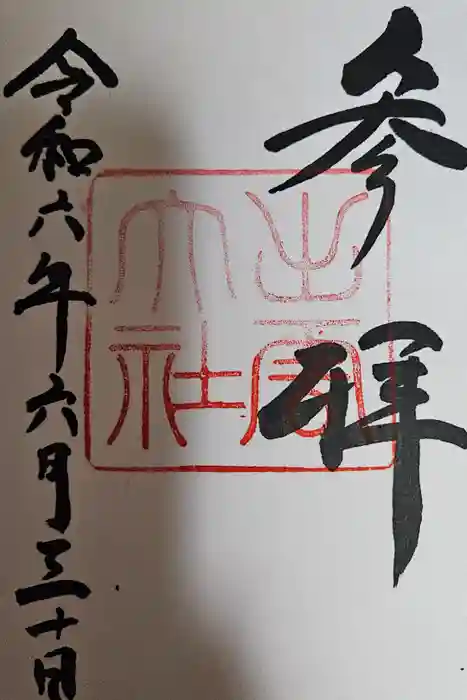 参拝
出雲大社
令和六年六月三十日